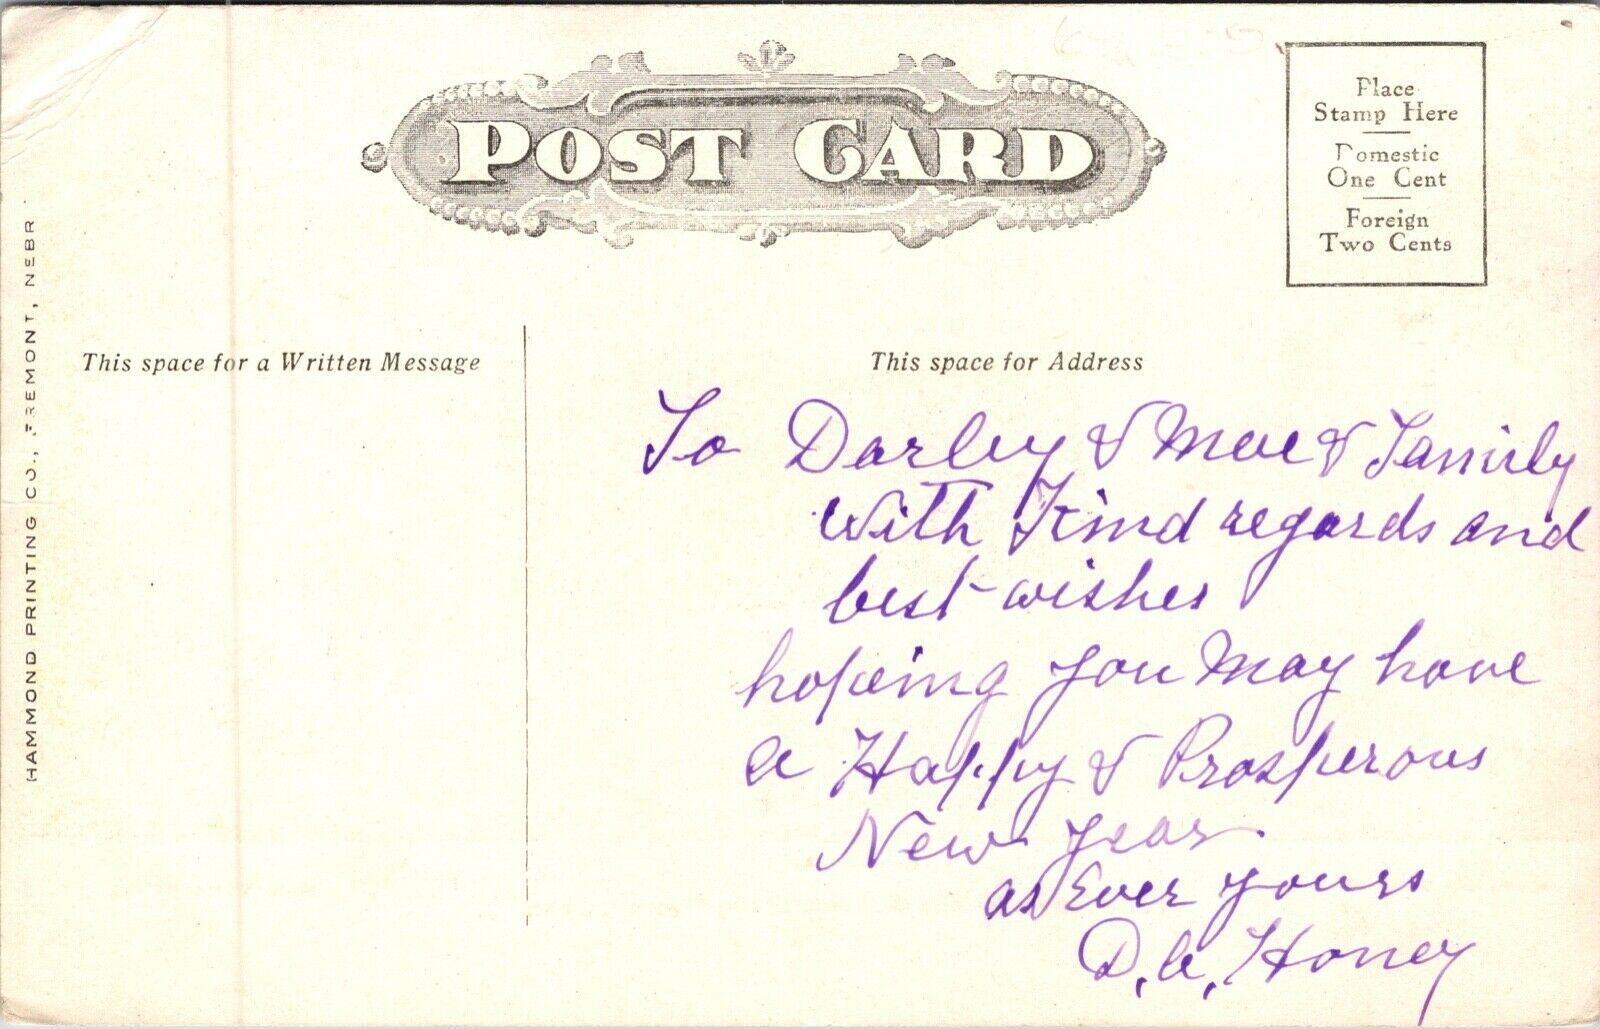 POST CARD
Place
Stamp Here
Domestic
One Cent
Foreign
Two Cents
HAMMOND PRINTING CO., FREMONT, NEBR
This space for a Written Message
This space for Address
To Darley & Mae & Family
With Kind regards and
best wishes
hoping you May have
a Happy & Prosperous
New Year
as Ever yours
D. A. Honey